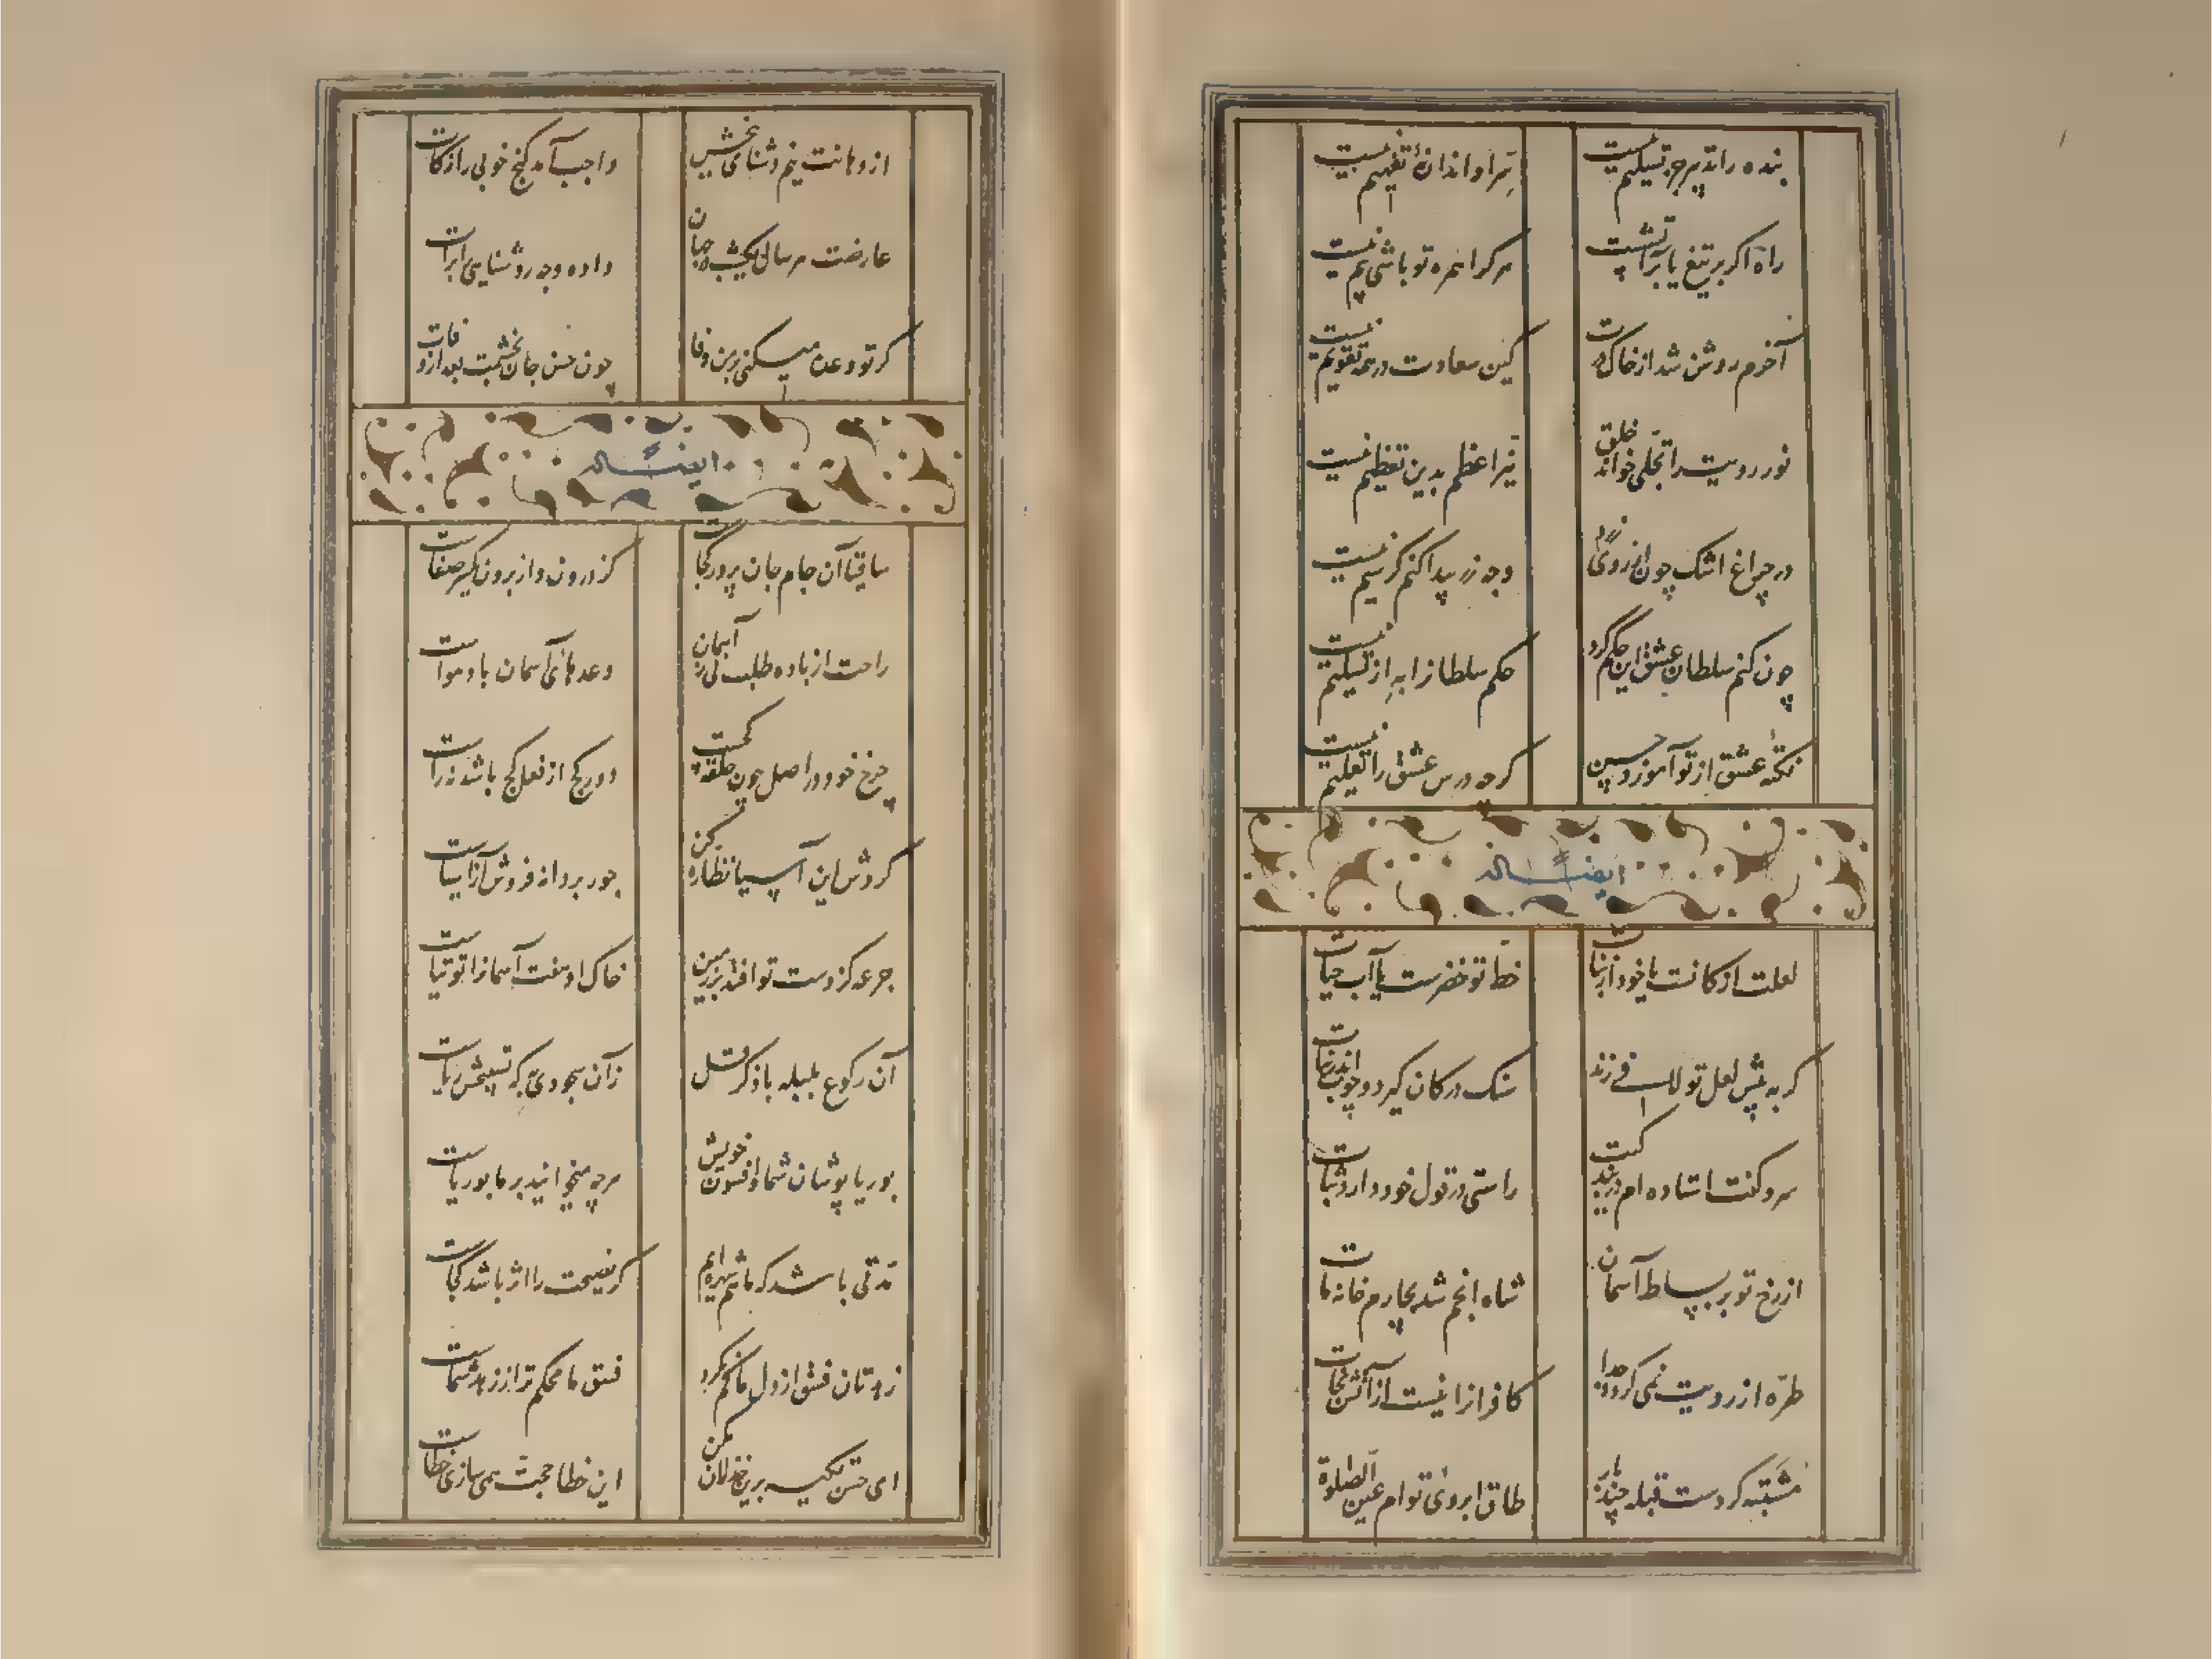 بنده را تدبیر جز تسلیم نیست
سر او را ندانهٔ تفهیم نیست
راه اگر بر تیغ یا بر آتشست
هر کرا همره تو باشی بیم نیست
آخرم روشن شد از خاک درت
کین سعادت در همه تقویم نیست
نور رویت را تجلی خواند خلق
نیر اعظم بدین تعظیم نیست
در چراغ اشک چون از روی
وجه زر پیدا کنم گر سیم نیست
چون کنم سلطان عشق این حکم کرد
حکم سلطانرا به از تسلیم نیست
نکتهٔ عشق از تو آموزد حسن
گرچه درس عشق را تعلیم نیست
ایضاً له
لعلت از کانست یا خود از نبات
خط تو خضرست یا آب حیات
گر به پیش لعل تو لافی زند
سنگ در کان گیرد و چوب اندر نبات
سرو گفت استاده ام در بندگیت
راستی در قول خود دارد ثبات
از رخ تو بر بساط آسمان
شاه انجم شد بچارم خانه مات
طره از رویت نمی گردد جدا
کافرانرا نیست از آتش نجات
مشتبه کردست قبله چند بار
طاق ابروی توام عین الصلوة
از دهانت نیم دشنامی ببخش
واجب آمد گنج خوبی را زکات
عارضت هر سال یکشب در جهان
داده وجه روشنایی برات
گر تو وعده میکنی بر من وفا
چون حسن جان بخشمت بعد از وفات
ایضاً له
ساقیا آن جام جان پرور کجاست
کز درون و از برون یکسر صفاست
راحت از باده طلب نی ز آسمان
وعدهای آسمان باد هواست
چرخ خود در اصل چون حلقه کجست
دور کج از فعل کج باشد نه راست
گردش این آسیا نظاره کن
جور بر دانه فروش آن آسیاست
جرعه کز دست تو افتد بر زمین
خاک او هفت آسمانرا توتیاست
آن رکوع بلبله با ذکر قل
زآن سجودی به که تسبیحش ریاست
بوریا پوشان شما و افسون خویش
هرچه میخوانید بر ما بوریاست
مدتی باشد که ما شهره ایم
گر نصیحت را اثر باشد کجاست
زهدتان فسق از دل ما کم نکرد
فسق ما محکم تر از زهد شماست
ای حسن تکیه برین خذلان مکن
این خطا حجت همی سازی خطاست